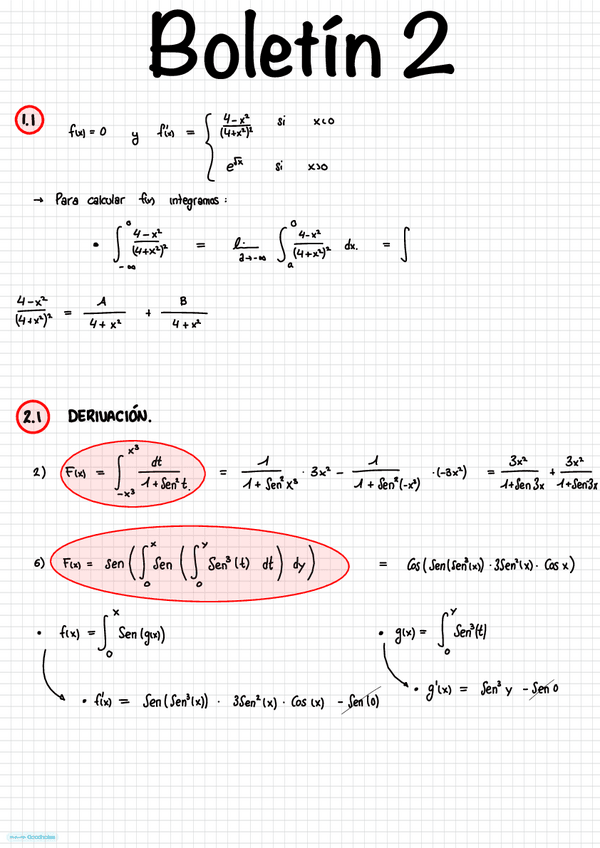 Boletín 2
1.1 f(x) = 0 y f'(x) = { 4-x² / (4+x²)² si x<0
e^√x si x>0
→ Para calcular f(x) integramos:
• ∫_{-∞}^{0} 4-x² / (4+x²)² = l. a→-∞ ∫_{a}^{0} 4-x² / (4+x²)² dx. = ∫
4-x² / (4+x²)² = A / 4+x² + B / 4+x²
2.1 DERIVACIÓN.
2) F(x) = ∫_{-x³}^{x³} dt / 1+Sen²t. = 1 / 1+Sen²x³ · 3x² - 1 / 1+Sen²(-x³) ·(-3x²) = 3x² / 1+Sen3x + 3x² / 1+Sen3x
6) F(x) = sen(∫_{0}^{x} Sen(∫_{0}^{y} Sen³(t) dt) dy) = Cos(Sen(Sen³(x))·3Sen²(x)·Cos x)
• f(x) = ∫_{0}^{x} Sen(g(x)) • g(x) = ∫_{0}^{y} Sen³(t)
• f'(x) = Sen(Sen³(x)) · 3Sen²(x)·Cos(x) - Sen(0) • g'(x) = Sen³ y - Sen 0
Goodnotes